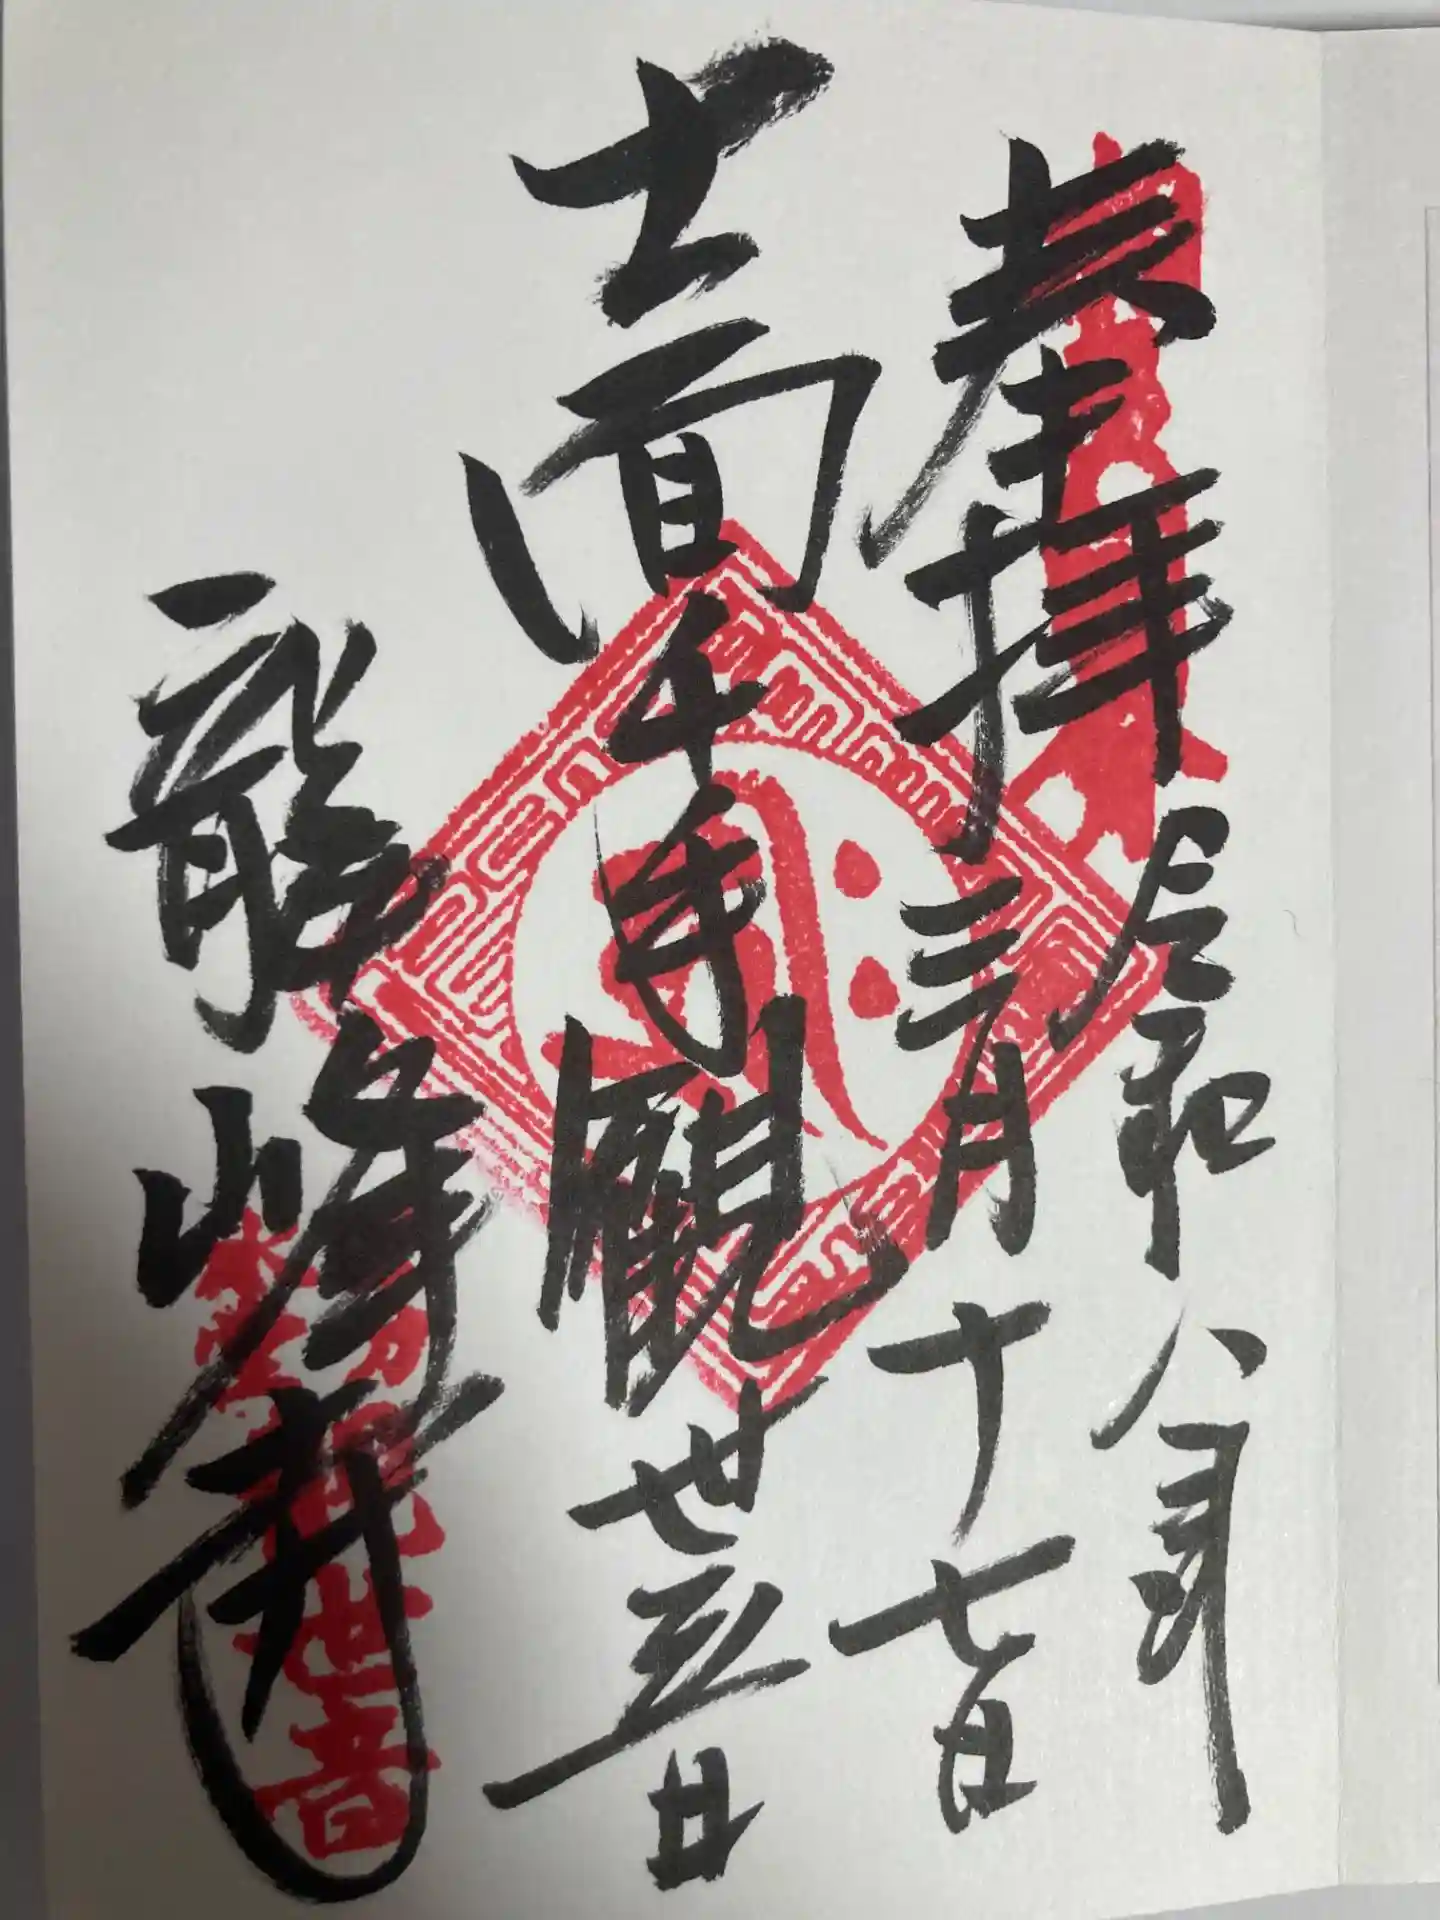 奉拝
令和八年
三月十七日
十一面千手觀世音
龍峰寺
水堂